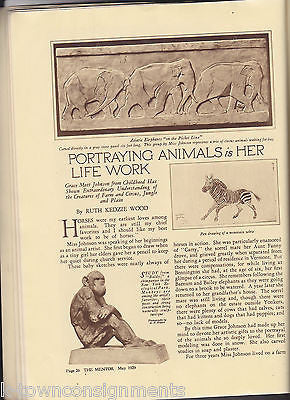 Asiatic Elephants "on the Picket Line"
Carved directly in a gray stone panel six feet long. This group by Miss Johnson represents a row of circus animals waiting for hay
PORTRAYING ANIMALS is HER
LIFE WORK
Grace Mott Johnson from Childhood Has
Shown Extraordinary Understanding of
the Creatures of Farm and Circus, Jungle
and Plain
By RUTH KEDZIE WOOD
HORSES were my earliest loves among
animals. They are still my chief
favorites and I should like my best
work to be of horses."
Miss Johnson was speaking of her beginnings
as an animal artist. She first began to draw when
a tiny girl her elders gave her a pencil to keep
her quiet during church service.
These baby sketches were usually of
Pen drawing of a mountain zebra
horses in action. She was particularly enamored
of "Garry," the horse her Aunt Fanny
drove, and grieved greatly when separated
from her during a period of residence in Vermont. But
there were compensations, for while living at
Bennington she had, at the age of six, her first
glimpse of a circus. She remembers following the
Barnum and Bailey elephants as they were going
down to a brook to be watered. A year later
she returned to her grandfather's home. The sorrel
mare was still living and, though there were
no elephants on the estate outside Yonkers,
there were plenty of cows that had calves, cats
that had kittens and dogs that had puppies; and
so—no lack of models.
For this time Grace Johnson had made up her
mind to devote her artistic gifts to the portrayal
of the animals she so dearly loved. Her first
modeling was done in snow. She also carved
studies in soap and plaster.
For three years Miss Johnson lived on a farm
Page 26 THE MENTOR May 1929
intownconsignments